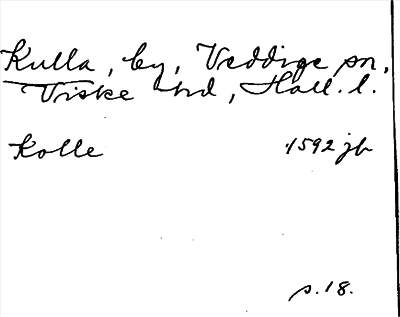 Kulla, by, Veddige sn,
Viske hd, Hall. l.
Kolle 1592 jb
s. 18.